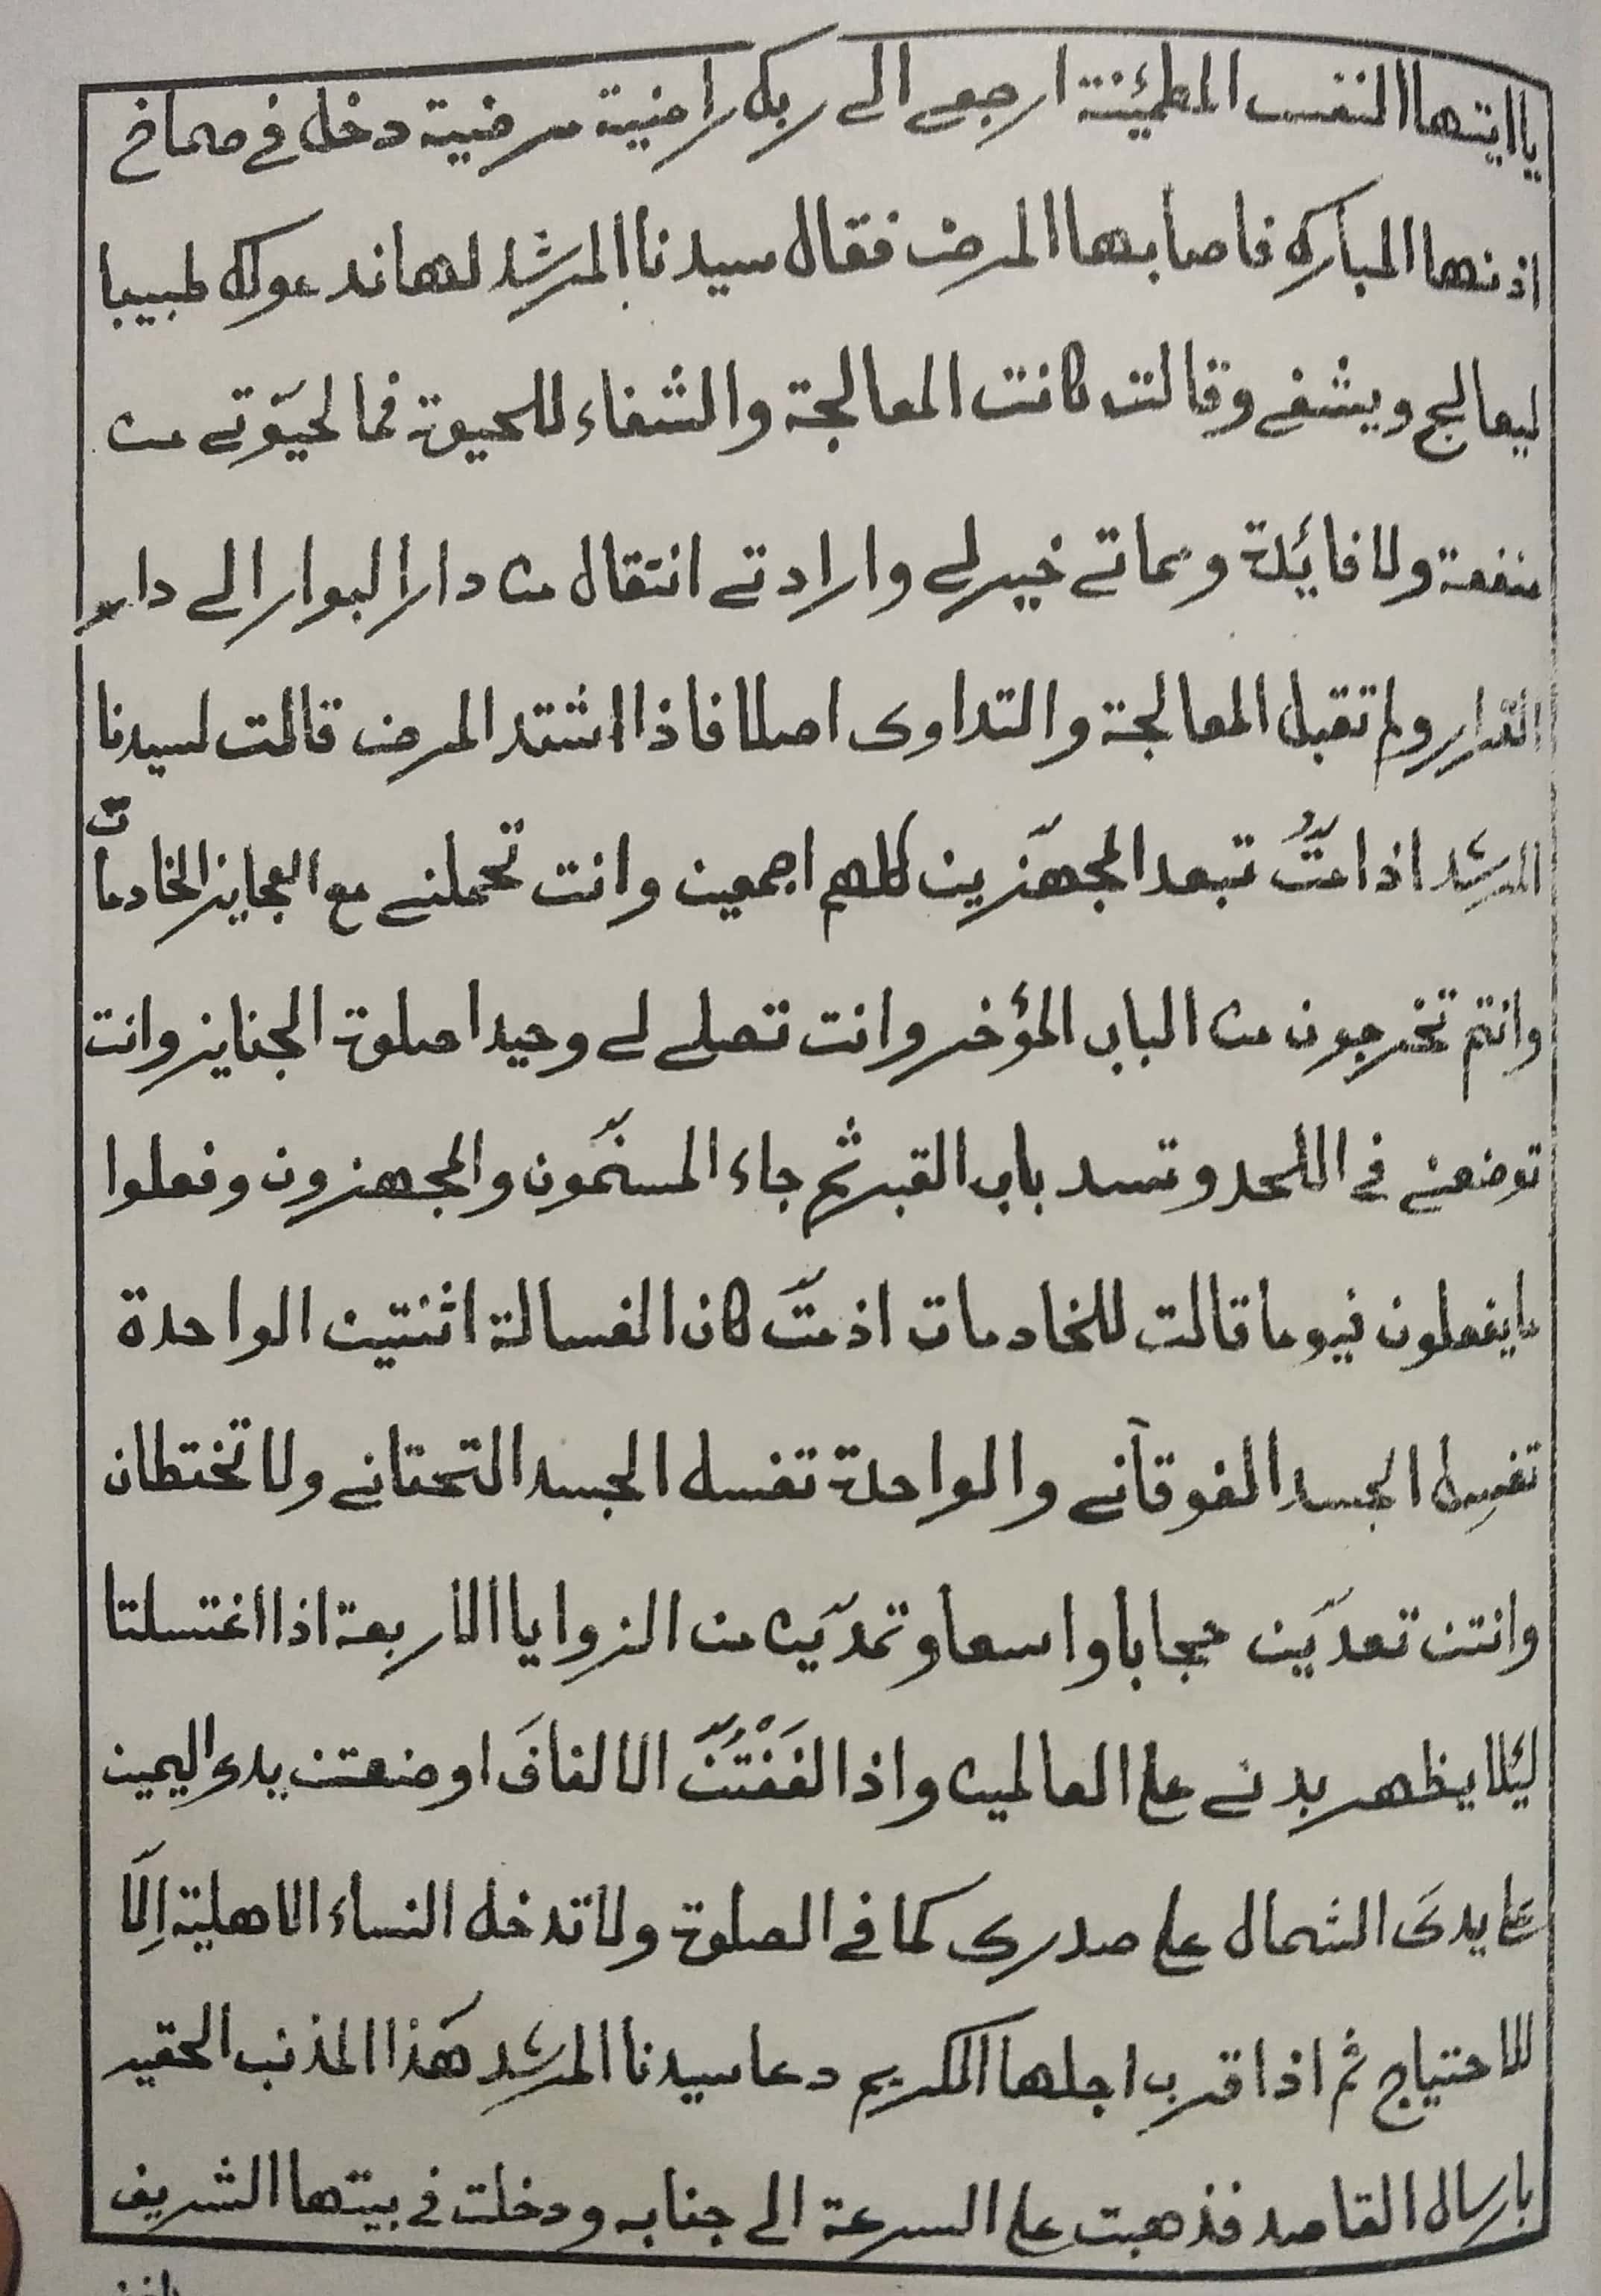 يا ايتها النفس المطمئنة ارجعي الى ربك راضية مرضية دخل في صماخ
اذنها المبارك فاصابها المرض فقال سيدنا المرشد لها ندعوك طبيبا
ليعالج ويشفي وقالت كانت المعالجة والشفاء للحيوة فما لحيَوتي من
منفعة ولا فائدة ومماتي خير لي وارادتي انتقال من دار البوار الى دار
القرار ولم تقبل المعالجة والتداوى اصلا فاذا اشتد المرض قالت لسيدنا
المرشد اذا متُّ تبعد المجهّزين كلهم اجمعين وانت تحملني مع العجايز الخادمات
وانتم تخرجون من الباب المؤخر وانت تصلي لي وحيدا صلوة الجنايز وانت
توضعني في اللحد وتسد باب القبر ثم جاء المسنّمون والمجهزون وفعلوا
ما يفعلون فيه وما قالت للخادمات اذ متّ كان الغسالة اثنتين الواحدة
تغسِل الجسد الفوقاني والواحدة تغسل الجسد التحتاني ولا تختطان
وانتن تعدّين حجابا واسعا وتمدّين من الزوايا الأربعة اذا اغتسلتا
لئلا يظهر بدني على العالمين واذا لففْتُنّ الالفافَ اوضعتن يدى اليمين
على يدىَ الشمال على صدرى كما في الصلوة ولا تدخل النساء الاهلية اِلّا
للاحتياج ثم اذا قرب اجلها الكريم دعا سيدنا المرشد هَذا المذنب الحقير
بارسال القاصد فذهبت على السرعة الى جنابه ودخلت في بيتها الشريف